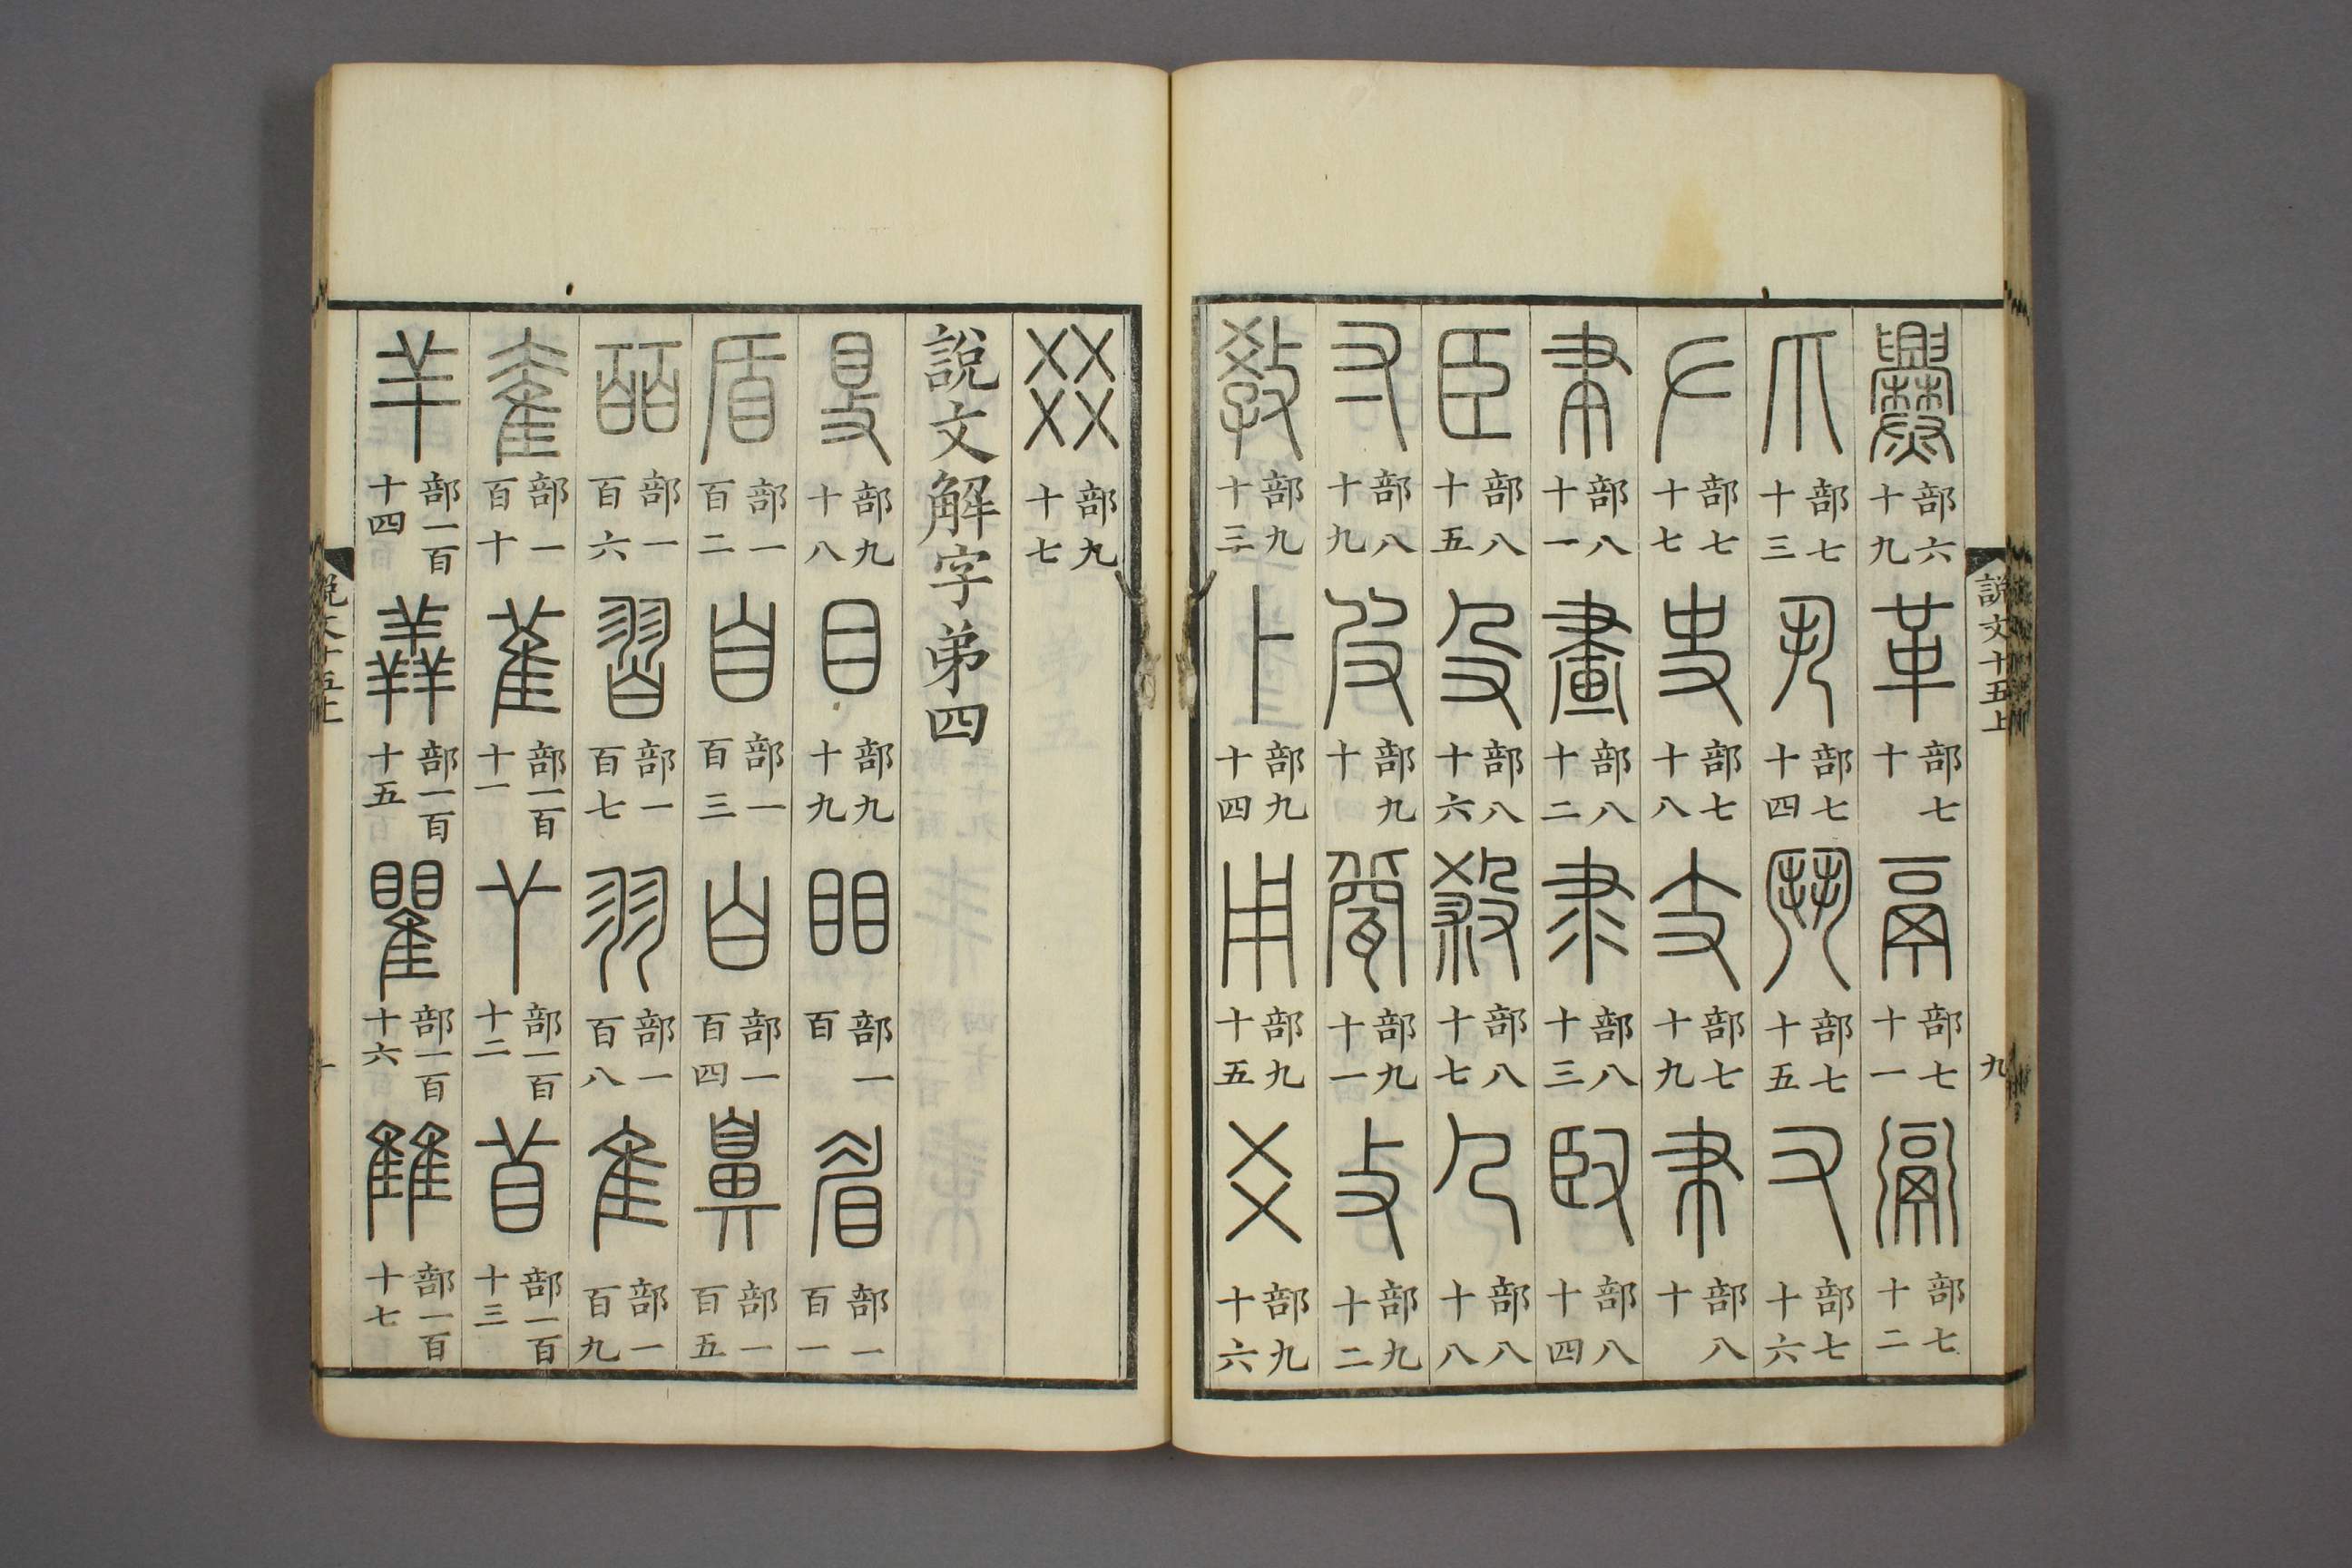 說文十五上 九
爨 部六十九 革 部七十 鬲 部七十一 䰜 部七十二
爪 部七十三 丮 部七十四 鬥 部七十五 又 部七十六
𠂇 部七十七 史 部七十八 支 部七十九 𦘒 部八十
聿 部八十一 畫 部八十二 隶 部八十三 臤 部八十四
臣 部八十五 殳 部八十六 殺 部八十七 𠘧 部八十八
寸 部八十九 皮 部九十 㼱 部九十一 攴 部九十二
教 部九十三 卜 部九十四 用 部九十五 爻 部九十六
㸚 部九十七
說文解字弟四
𥄎 部九十八 目 部九十九 䀠 部一百 眉 部一百一
盾 部一百二 自 部一百三 白 部一百四 鼻 部一百五
皕 部一百六 習 部一百七 羽 部一百八 隹 部一百九
奞 部一百十 雈 部一百十一 𦫳 部一百十二 苜 部一百十三
羊 部一百十四 羴 部一百十五 瞿 部一百十六 雔 部一百十七
說文十五上